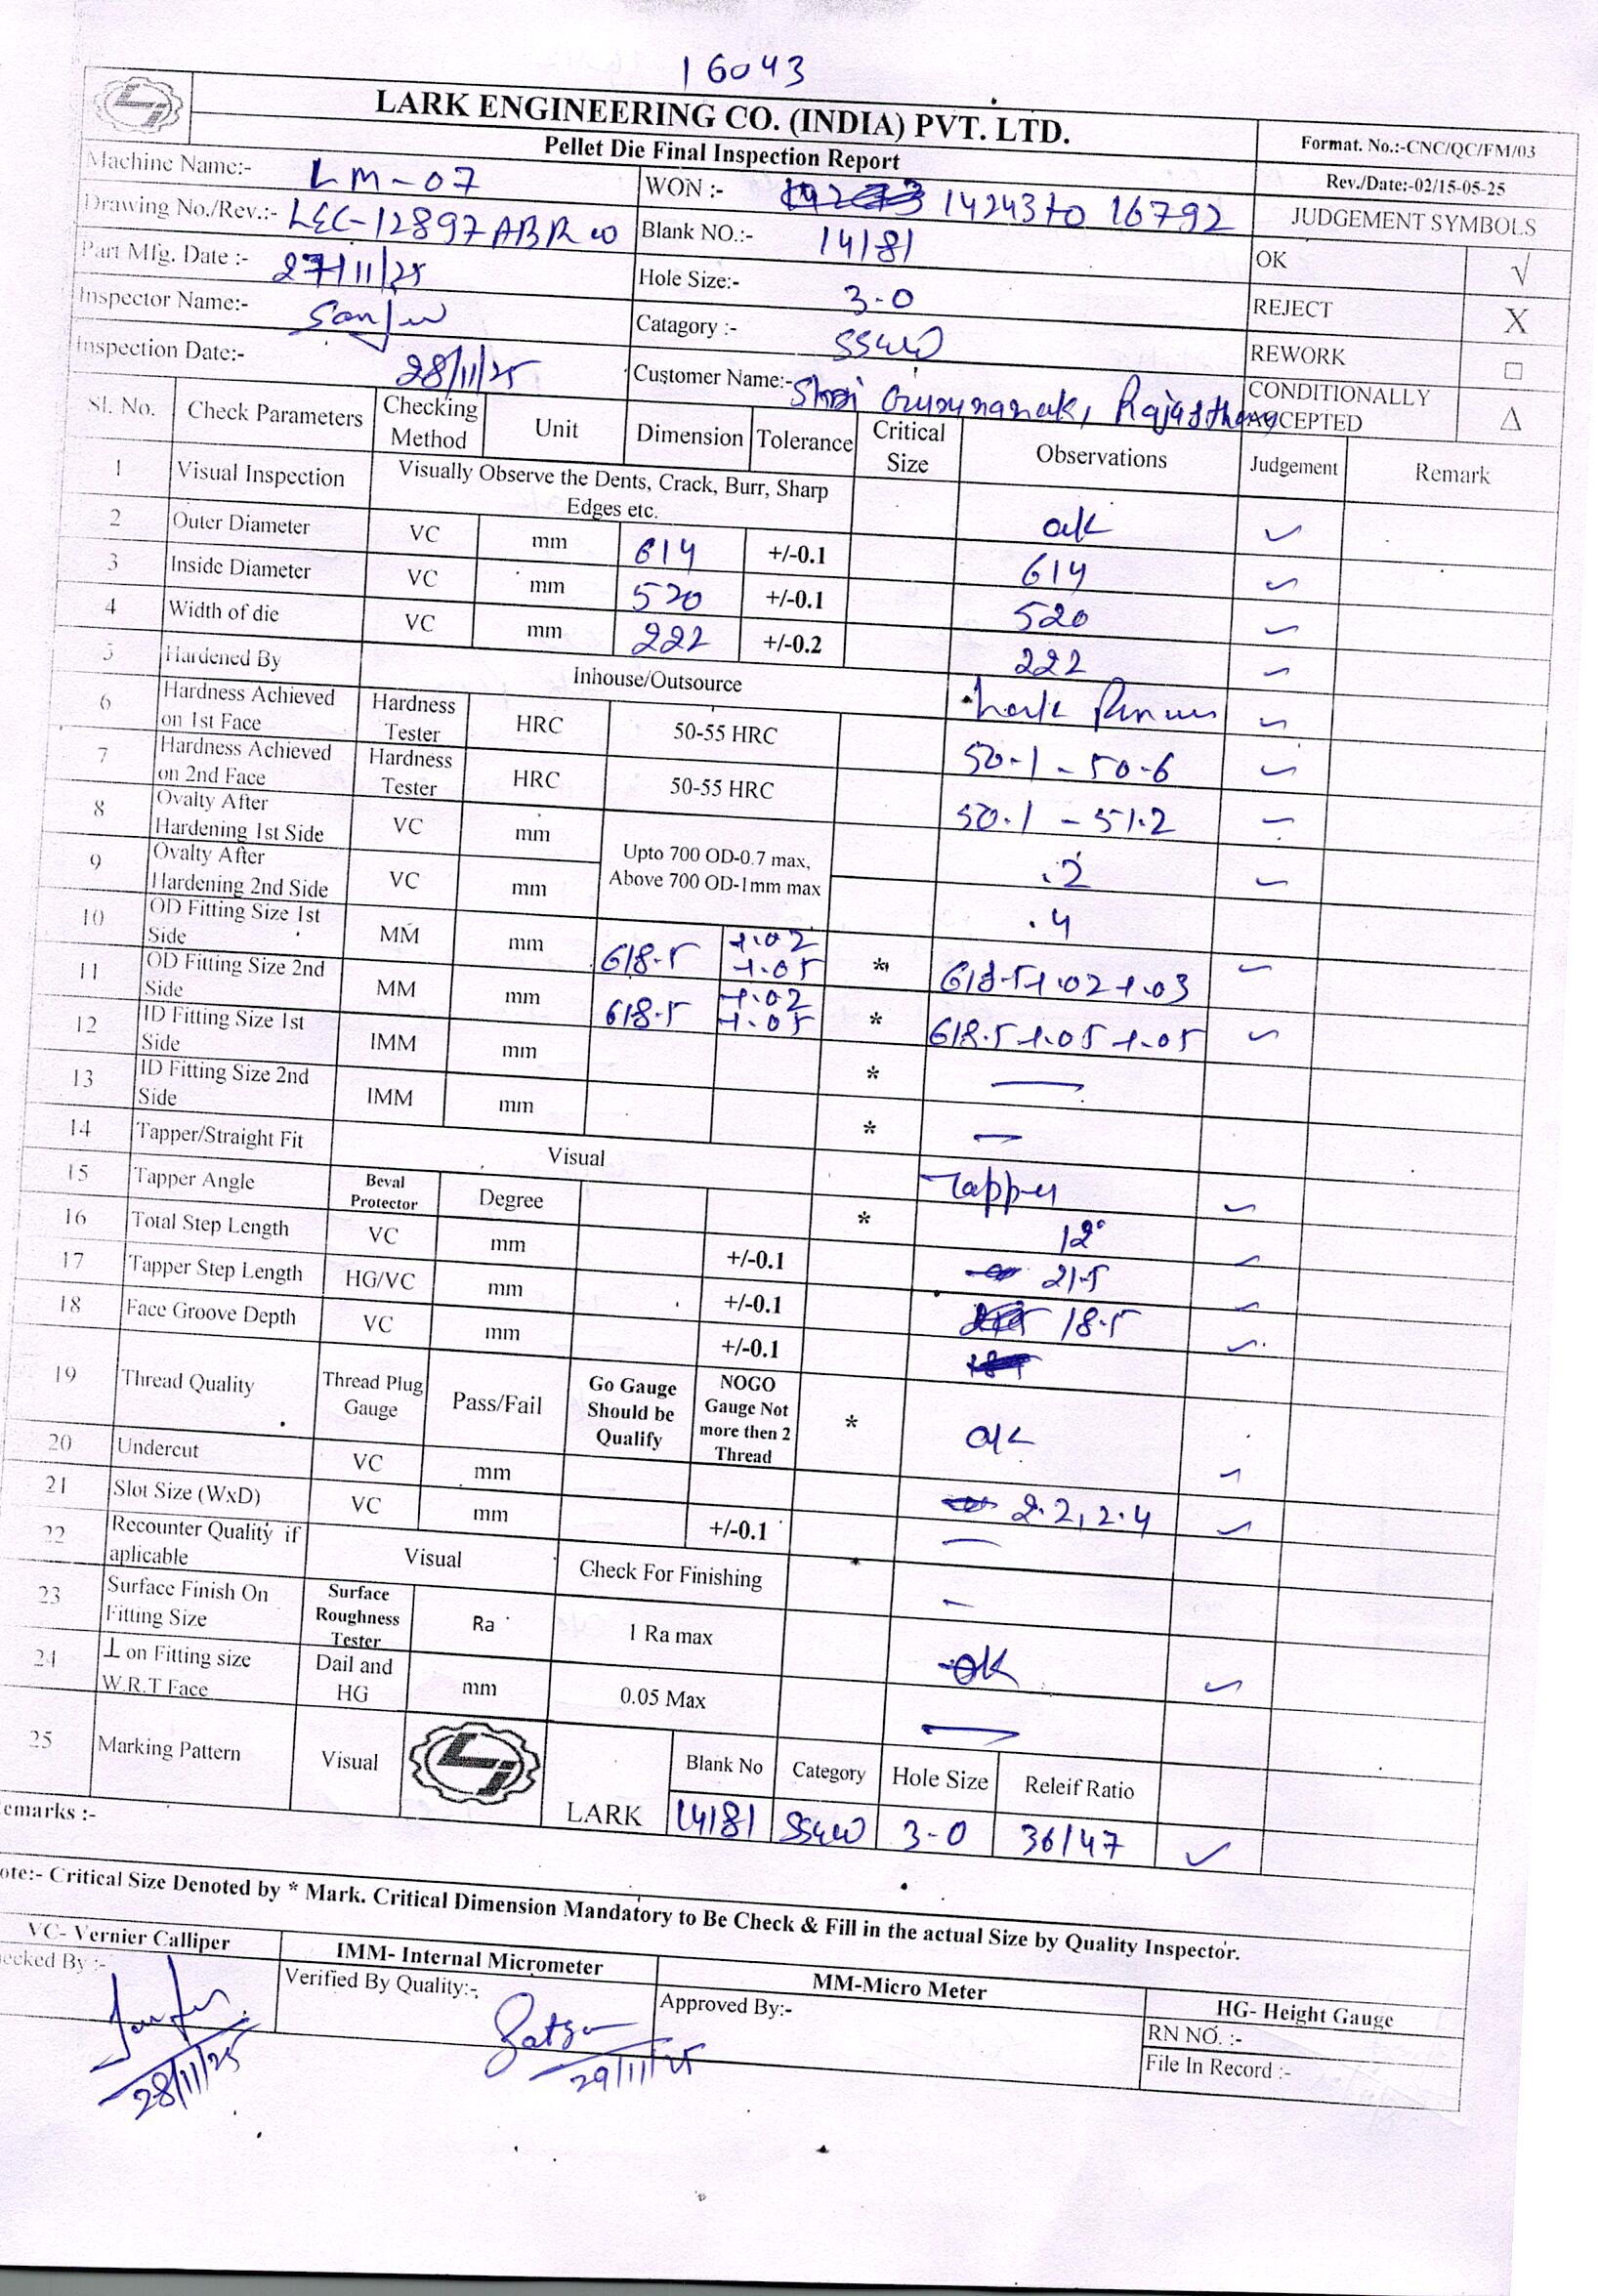 16043
LARK ENGINEERING CO. (INDIA) PVT. LTD.
Pellet Die Final Inspection Report
Format. No.:-CNC/QC/FM/03
Rev./Date:-02/15-05-25
Machine Name:- LM-07
WON :- 14243 to 16792
JUDGEMENT SYMBOLS
Drawing No./Rev.:- LEC-12897 ABR
Blank NO.:- 14181
OK √
Part Mfg. Date :- 27/11/25
Hole Size:- 3-0
REJECT X
Inspector Name:- Sanju
Catagory :- SS4W
REWORK □
Inspection Date:- 28/11/25
Customer Name:- Shri Gurunanak, Rajasthan
CONDITIONALLY ACCEPTED Δ
Sl. No. Check Parameters Checking Method Unit Dimension Tolerance Critical Size Observations Judgement Remark
1 Visual Inspection Visually Observe the Dents, Crack, Burr, Sharp Edges etc. ok ✓
2 Outer Diameter VC mm 614 +/-0.1 614 ✓
3 Inside Diameter VC mm 520 +/-0.1 520 ✓
4 Width of die VC mm 222 +/-0.2 222 ✓
5 Hardened By Inhouse/Outsource Lark ✓
6 Hardness Achieved on 1st Face Hardness Tester HRC 50-55 HRC 50.1 - 50.6 ✓
7 Hardness Achieved on 2nd Face Hardness Tester HRC 50-55 HRC 50.1 - 51.2 ✓
8 Ovalty After Hardening 1st Side VC mm Upto 700 OD-0.7 max, Above 700 OD-1mm max .2 ✓
9 Ovalty After Hardening 2nd Side VC mm .4
10 OD Fitting Size 1st Side MM mm 618.5 +.02 +.05 * 618.5 +.02 +.03 ✓
11 OD Fitting Size 2nd Side MM mm 618.5 +.02 +.05 * 618.5 +.05 +.05 ✓
12 ID Fitting Size 1st Side IMM mm * —
13 ID Fitting Size 2nd Side IMM mm * —
14 Tapper/Straight Fit Visual Tapper ✓
15 Tapper Angle Beval Protector Degree * 12° ✓
16 Total Step Length VC mm +/-0.1 21.5 ✓
17 Tapper Step Length HG/VC mm +/-0.1 18.5 ✓
18 Face Groove Depth VC mm +/-0.1
19 Thread Quality Thread Plug Gauge Pass/Fail Go Gauge Should be Qualify NOGO Gauge Not more then 2 Thread * ok ✓
20 Undercut VC mm 2.2, 2.4 ✓
21 Slot Size (WxD) VC mm +/-0.1 —
22 Recounter Quality if aplicable Visual Check For Finishing —
23 Surface Finish On Fitting Size Surface Roughness Tester Ra 1 Ra max OK ✓
24 ⊥ on Fitting size W.R.T Face Dail and HG mm 0.05 Max —
25 Marking Pattern Visual LARK Blank No Category Hole Size Releif Ratio
14181 SS4W 3-0 36/47 ✓
emarks :-
ote:- Critical Size Denoted by * Mark. Critical Dimension Mandatory to Be Check & Fill in the actual Size by Quality Inspector.
VC- Vernier Calliper IMM- Internal Micrometer MM-Micro Meter HG- Height Gauge
ecked By :- Verified By Quality:- Approved By:- RN NO. :-
File In Record :-
28/11/25 29/11/25